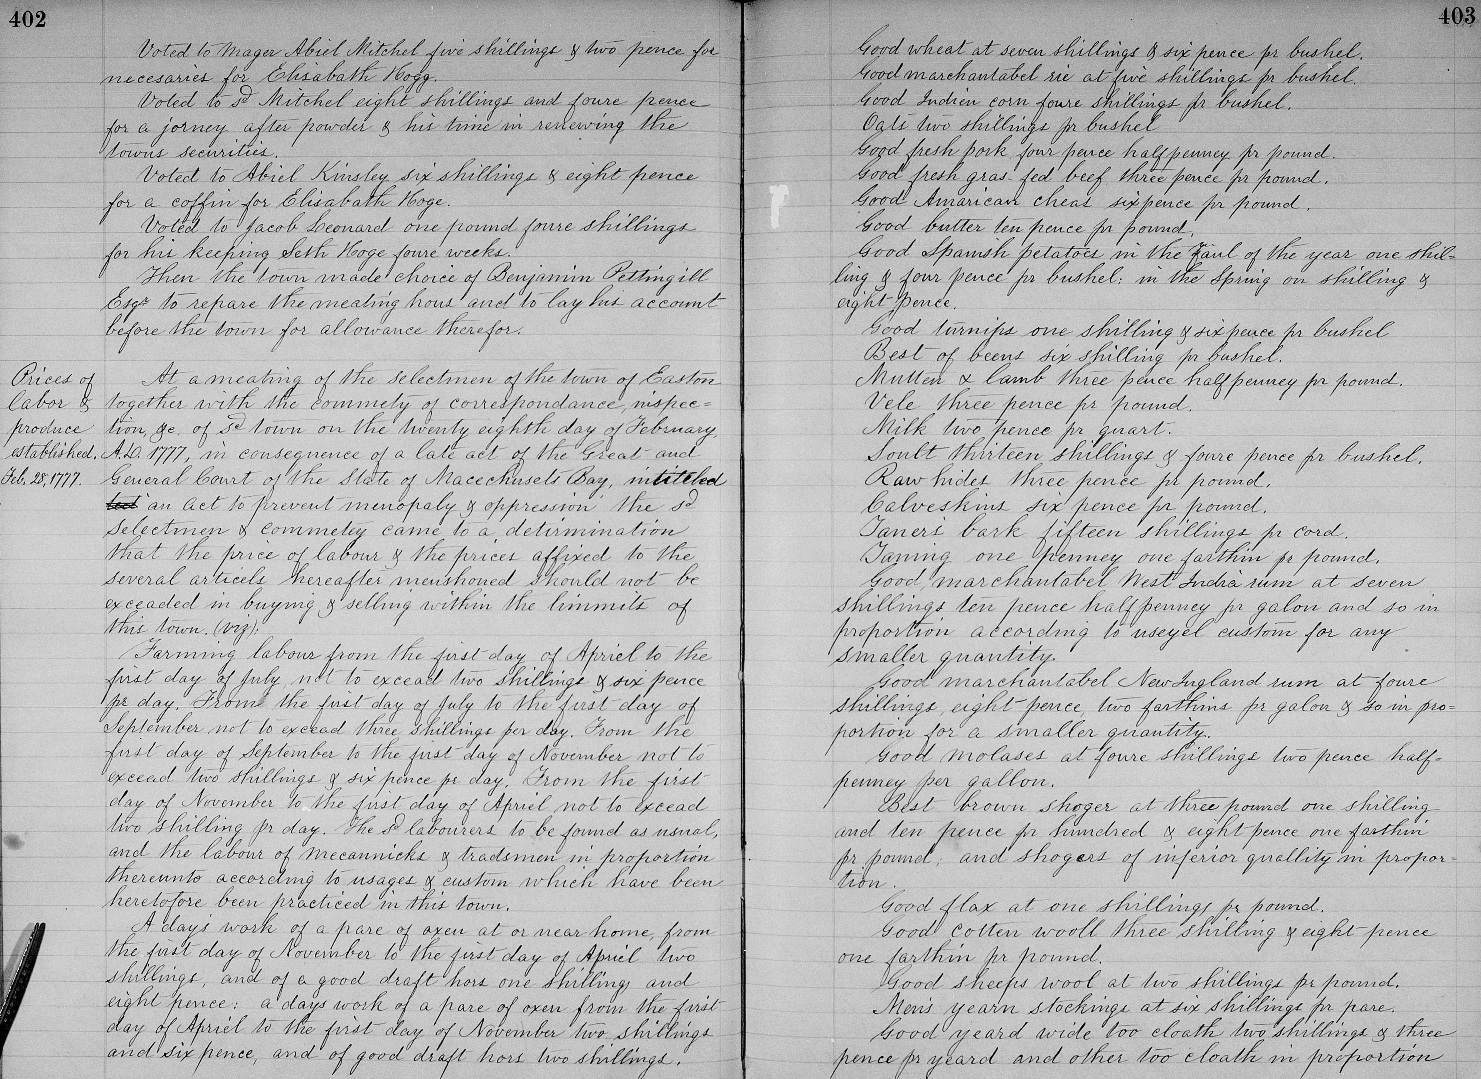 402
Voted to Mager Abiel Mitchel five shillings & two pence for
necesaries for Elisabath Hogg.
Voted to sd Mitchel eight shillings and foure pence
for a jorney after powder & his time in renewing the
towns securities.
Voted to Abiel Kinsley six shillings & eight pence
for a coffin for Elisabath Hoge.
Voted to Jacob Leonard one pound foure shillings
for his keeping Seth Hoge foure weeks.
Then the town made choice of Benjamin Pettingill
Esqr to repare the meating hous and to lay his account
before the town for allowance therefor.
Prices of
labor &
produce
established.
Feb. 28, 1777.
At a meating of the selectmen of the town of Easton
together with the commety of correspondance, inspec=
tion, &c, of sd town on the twenty eighth day of February
A.D. 1777, in consequence of a late act of the Great and
General Court of the State of Macechusets Bay, intiteled
an act to prevent menopaly & oppression the sd
selectmen & commety came to a detirmination
that the price of labour & the prices affixed to the
several articels hereafter menshoned should not be
exceaded in buying & selling within the limmits of
this town. (viz).
Farming labour from the first day of Apriel to the
first day of July not to excead two shillings & six pence
pr day. From the first day of July to the first day of
September not to excead three shillings per day. From the
first day of September to the first day of November not to
excead two shillings & six pence pr day. From the first
day of November to the first day of April not to excead
two shilling pr day. The sd labourers to be found as usual,
and the labour of mecannicks & tradsmen in proportion
thereunto according to usages & custom which have been
heretofore been practiced in this town.
A days work of a pare of oxen at or near home, from
the first day of November to the first day of Apriel two
shillings, and of a good draft hors one shilling and
eight pence; a days work of a pare of oxen from the first
day of Apriel to the first day of November two shillings
and six pence, and of good draft hors two shillings.
403
Good wheat at seven shillings & six pence pr bushel.
Good marchantabel rie at five shillings pr bushel.
Good Indien corn foure shillings pr bushel.
Oats two shillings pr bushel
Good fresh pork four pence halfpenney pr pound.
Good fresh gras-fed beef three pence pr pound.
Good Amarican cheas sixpence pr pound.
Good butter ten pence pr pound.
Good Spanish petatoes in the faul of the year one shil-
ling & four pence pr bushel; in the spring on shilling &
eight pence.
Good turnips one shilling & sixpence pr bushel
Best of beens six shilling pr bushel.
Mutten & lamb three pence halfpenney pr pound.
Vele three pence pr pound.
Milk two pence pr quart.
Soult thirteen shillings & foure pence pr bushel.
Raw hides three pence pr pound.
Calveskins six pence pr pound.
Taner's bark fifteen shillings pr cord.
Taning one penney one farthin pr pound.
Good marchantabel West India rum at seven
shillings ten pence halfpenney pr galon and so in
proportion according to useyel custom for any
smaller quantity.
Good marchantabel New Ingland rum at foure
shillings eight pence two farthins pr galon & so in pro=
portion for a smaller quantity.
Good molases at foure shillings two pence half=
penney per gallon.
Best brown shoger at three pound one shilling
and ten pence pr hundred & eight pence one farthin
pr pound; and shogers of inferior quallity in propor=
tion.
Good flax at one shillings pr pound.
Good cotten wooll three shilling & eight pence
one farthin pr pound.
Good sheeps wool at two shillings pr pound.
Men's yearn stockings at six shillings pr pare.
Good yeard wide too cloath two shillings & three
pence pr yeard and other too cloath in proportion